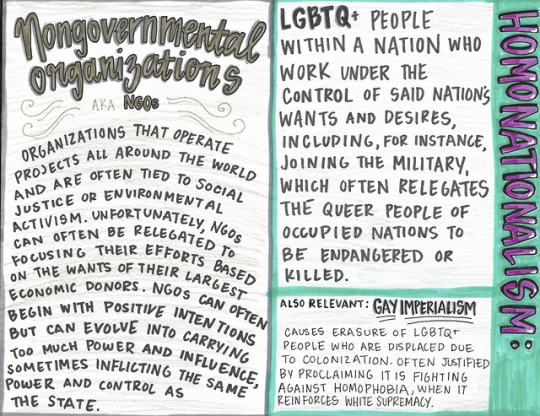 Nongovernmental
Organizations
AKA NGOs
ORGANIZATIONS THAT OPERATE
PROJECTS ALL AROUND THE WORLD
AND ARE OFTEN TIED TO SOCIAL
JUSTICE OR ENVIRONMENTAL
ACTIVISM. UNFORTUNATELY, NGOs
CAN OFTEN BE RELEGATED TO
FOCUSING THEIR EFFORTS BASED
ON THE WANTS OF THEIR LARGEST
ECONOMIC DONORS. NGOs CAN OFTEN
BEGIN WITH POSITIVE INTENTIONS
BUT CAN EVOLVE INTO CARRYING
TOO MUCH POWER AND INFLUENCE,
SOMETIMES INFLICTING THE SAME
POWER AND CONTROL AS
THE STATE.
HOMONATIONALISM:
LGBTQ+ PEOPLE
WITHIN A NATION WHO
WORK UNDER THE
CONTROL OF SAID NATION'S
WANTS AND DESIRES,
INCLUDING, FOR INSTANCE,
JOINING THE MILITARY,
WHICH OFTEN RELEGATES
THE QUEER PEOPLE OF
OCCUPIED NATIONS TO
BE ENDANGERED OR
KILLED.
ALSO RELEVANT: GAY IMPERIALISM
CAUSES ERASURE OF LGBTQ+
PEOPLE WHO ARE DISPLACED DUE
TO COLONIZATION. OFTEN JUSTIFIED
BY PROCLAIMING IT IS FIGHTING
AGAINST HOMOPHOBIA, WHEN IT
REINFORCES WHITE SUPREMACY.